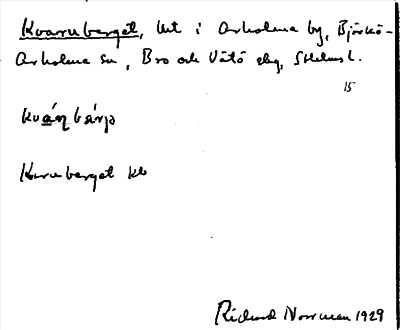 Kvarnberget, ht i Arholma by, Björkö-
Arholma sn, Bro och Vätö skg, Sthlms l.
15
kvá̱ɳbärjə
Kvarnberget kb
Rickard Norrman 1929